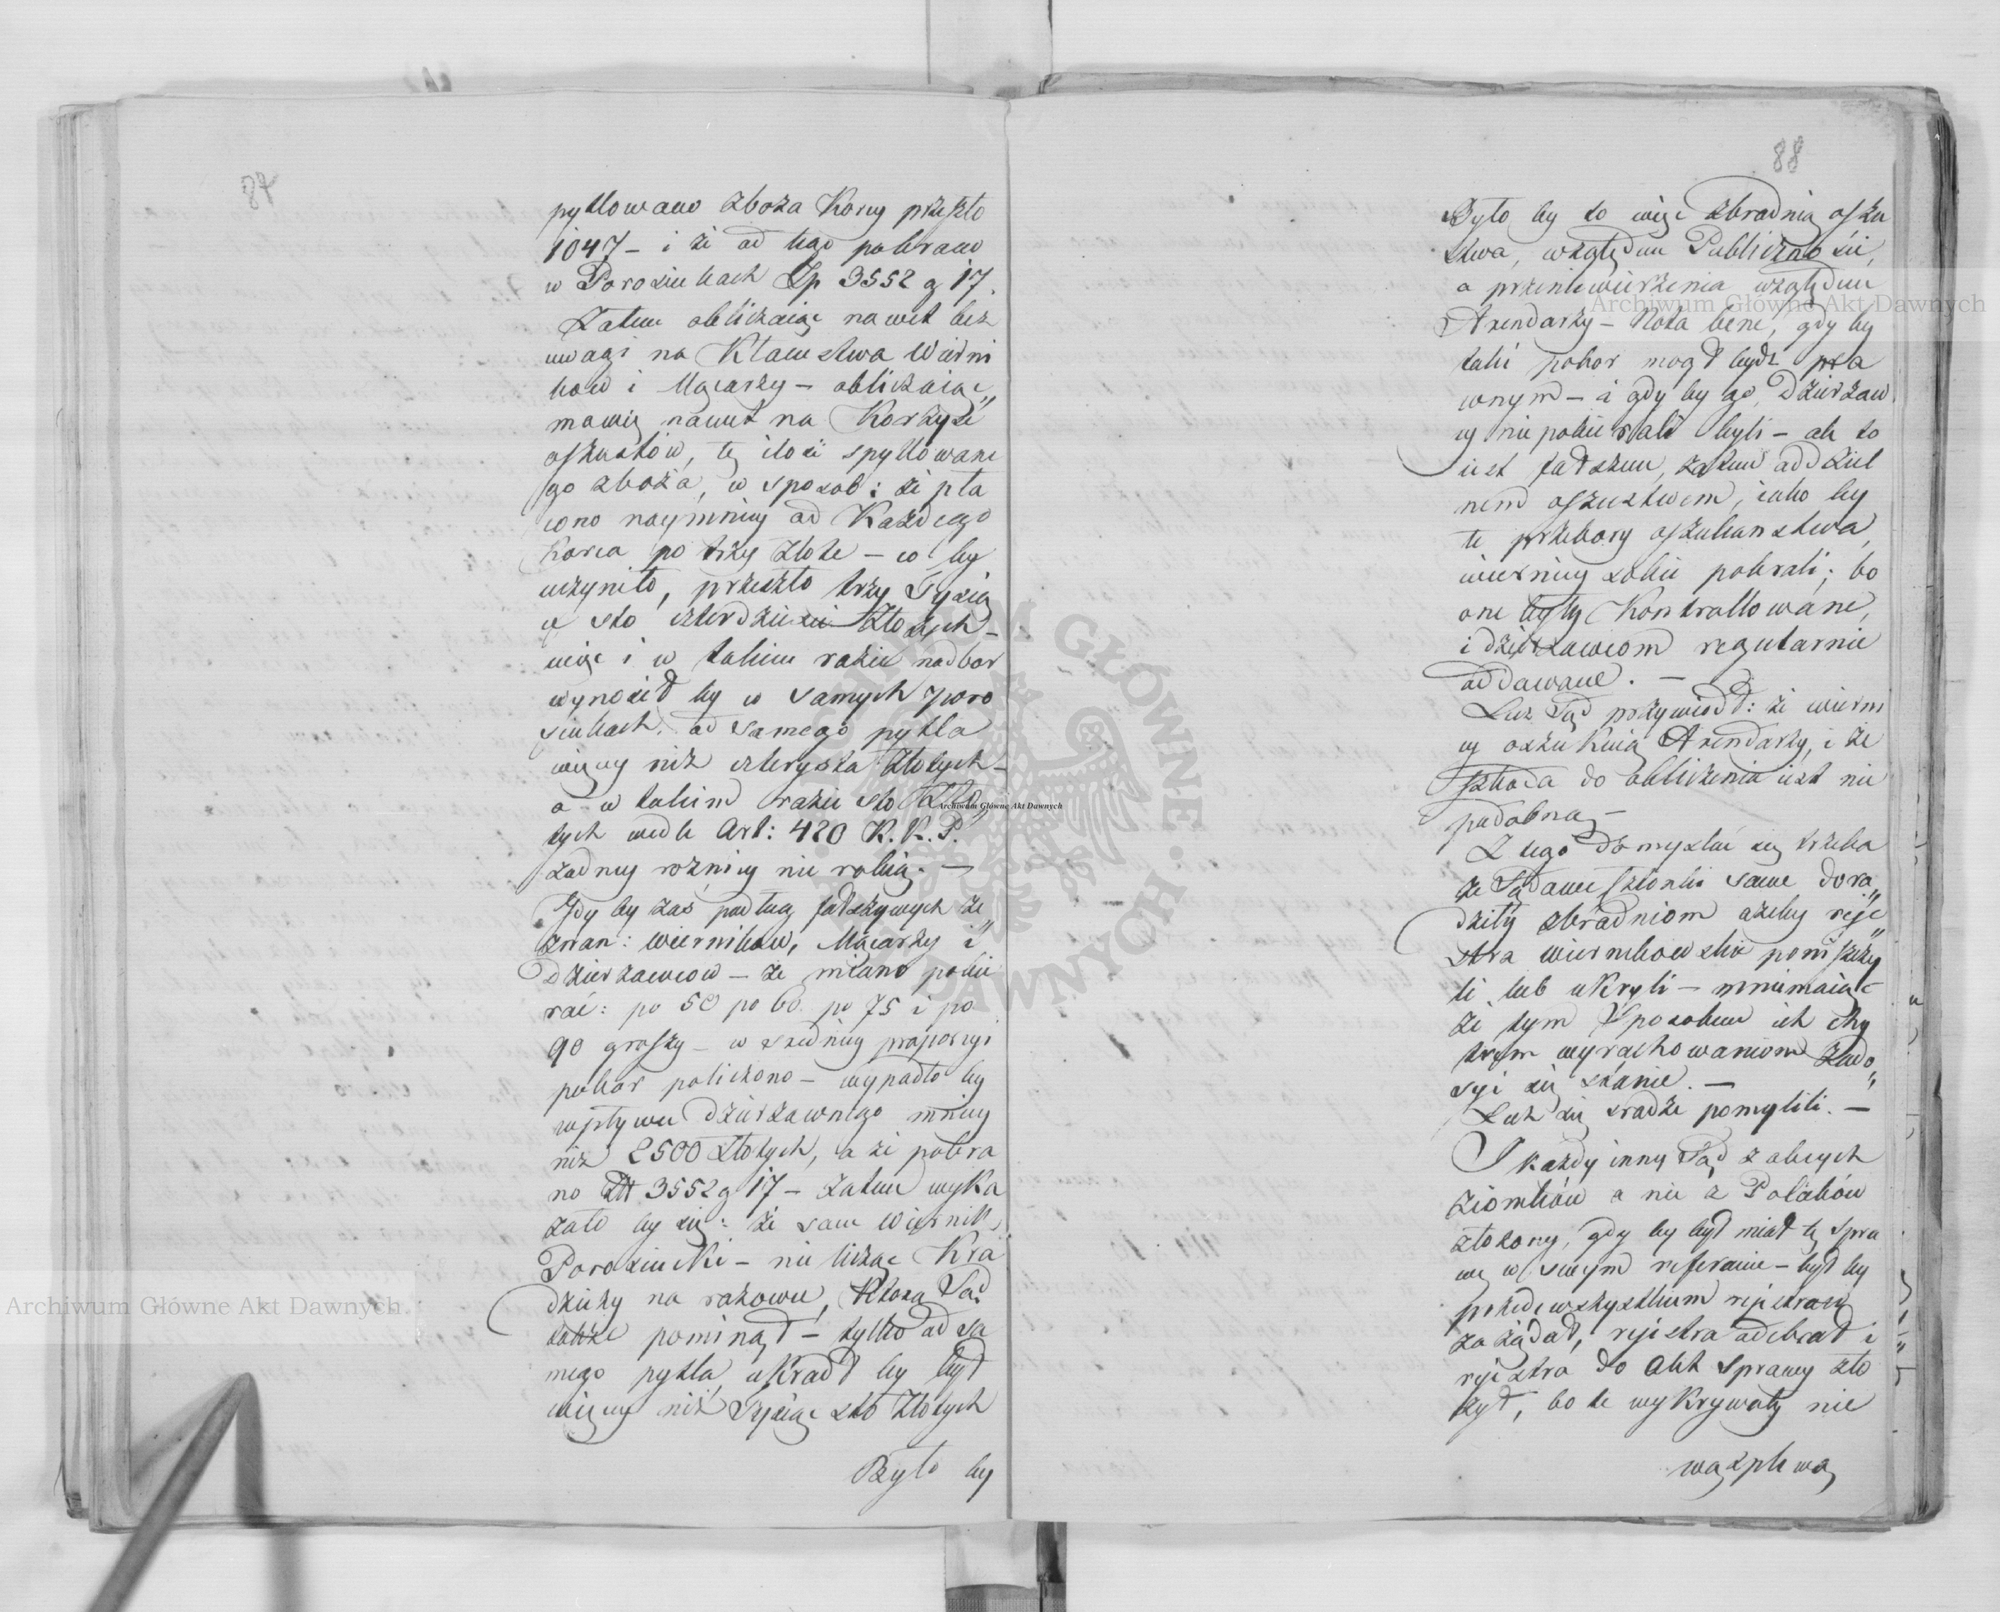 87
pytlowano zboża Korcy przeszło
1047 – i że od tego pobrano
w Porosiukach Zp 3552 g 17.
Zatem obliczaiąc nawet bez
uwagi na Kłamstwa Wierni
kow i Mącarzy – obliczaiąc„
mowię nawet na Korzyść
oszustów, tę ilość spytlowane
go zboża, w sposob: że pła
cono naymniey od Każdego
Korca po trzy złote – co by
uczyniło, przeszło trzy Tysią
ce sto czterdzieści Złotych –
więc i w takim razie nadbor
wynosił by w samych Poro
siukach, od samego pytla
więcey niż czterysta Złotych –
a w takim razie sto Zło„
tych wedle Art: 420 K. K. P.
żadney rożnicy nie robią. —
Gdy by zaś podług fałszywych ze„
znan: wiernikow, Mącarzy i„
Dzierzawcow – że miano pobie
rać: po 50 po 60. po 75 i po
90 groszy – w średniey proporcyi
pobor policzono – wypadło by
wpływu dzierzawnego mniey
niż 2500 Złotych, a że pobra
no Zł 3552 g 17 – zatem wyka
zało by się: że sam Wiernik„
Porosiucki – nie licząc Kra
dzieży na razowce, Ktorą Sąd
także pominął – tylko od sa
mego pytla, ukradł by był
więcey niż Tysiąc sto Złotych
Było by
88
Było by to więc zbrodnią oszu
stwa, względem Publiczności,
a przeniewierzenia względem
Arendarzy – Nota bene, gdy by
taki pobor mogł bydz pra
wnym – i gdy by go Dzierzaw
cy nie pobierali byli – ale to
iest fałszem, zatem oddziel
nem oszustwem, iako by
te przebory oszukanstwa,
wiernicy sobie pobrali; bo
one były Kontrollowane,
i dzierzawcom regularnie
oddawane. —
Lecz Sąd przywiodł: że wierni
cy oszukuią Arendarzy, i że
szkoda do obliczenia iest nie
podobną –
Z tego domyslać się trzeba
że Sądowe Członki same dora„
dziły zbrodniom ażeby reje„
stra wiernikowskie poniszczy„
li lub ukryli – mniemaiąc
że tym Sposobem ich chy
trym wyrachowaniom zado„
syć się stanie. —
Lecz się srodze pomylili. —
I każdy inny Sąd z obcych
ziomków a nie z Polaków
złożony, gdy by był miał tę spra
wę w swym referacie – był by
przedewszystkiem rejestrow
zażądał, rejestra odebrał i
rejestra do Akt Sprawy zło
żył, bo te wykrywały nie
wąszpliwą
Archiwum Główne Akt Dawnych
Archiwum Główne Akt Dawnych
Archiwum Główne Akt Dawnych